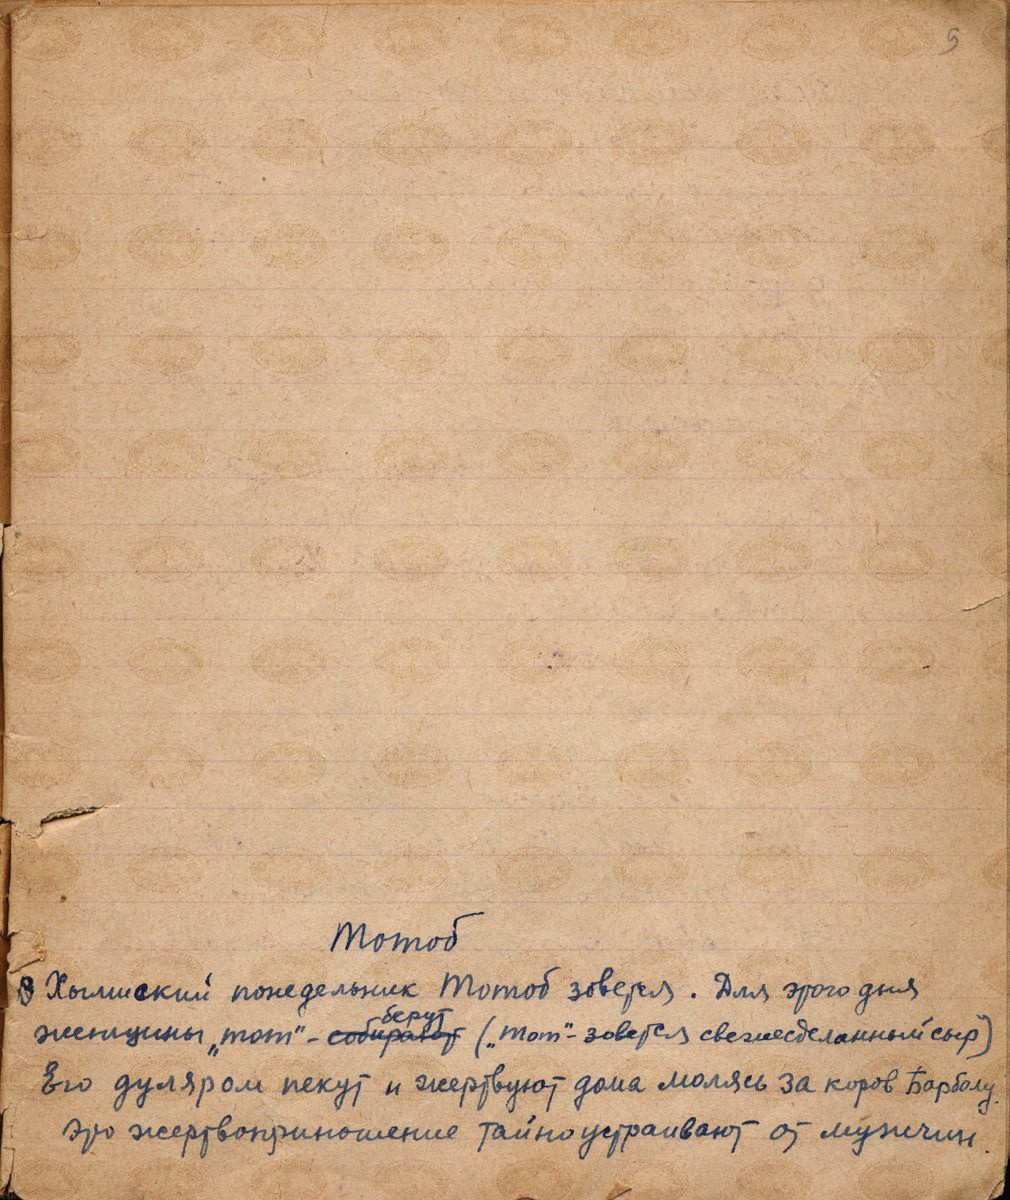 5
Мотоб
В Хылишский понедельник Мотоб зовется. Для этого дня
женщины „тот“ - собирают берут („тот“ - зовется свежесделанный сыр)
Его дуляром пекут и жертвуют дома молясь за коров Барбалу.
Это жертвоприношение тайно устраивают от мужчин.